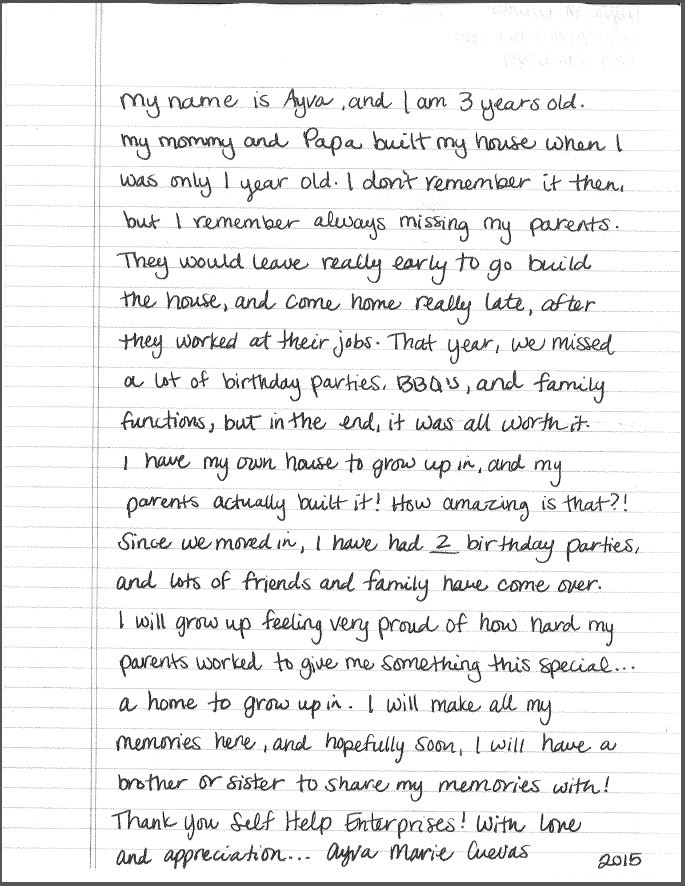 My name is Ayva, and I am 3 years old.
My mommy and Papa built my house when I
was only 1 year old. I don't remember it then,
but I remember always missing my parents.
They would leave really early to go build
the house, and come home really late, after
they worked at their jobs. That year, we missed
a lot of birthday parties, BBQ's, and family
functions, but in the end, it was all worth it.
I have my own house to grow up in, and my
parents actually built it! How amazing is that?!
Since we moved in, I have had 2 birthday parties,
and lots of friends and family have come over.
I will grow up feeling very proud of how hard my
parents worked to give me something this special...
a home to grow up in. I will make all my
memories here, and hopefully soon, I will have a
brother or sister to share my memories with!
Thank you Self Help Enterprises! With love
and appreciation... Ayva Marie Cuevas 2015